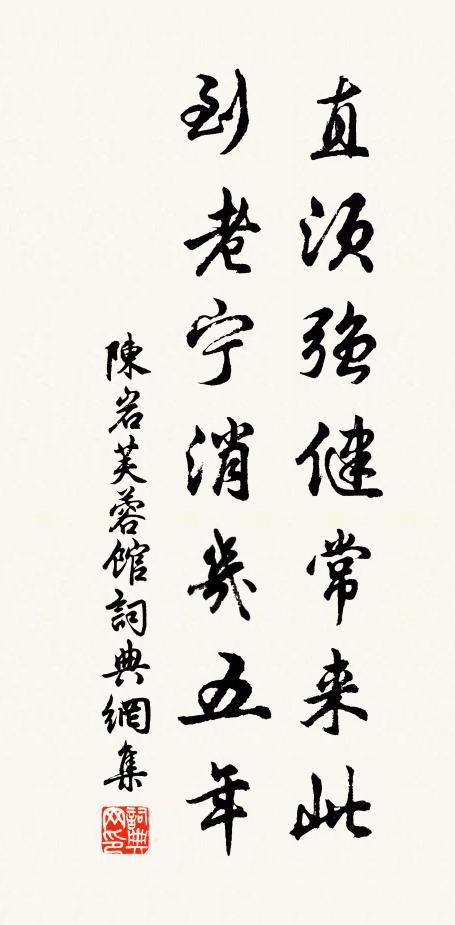 直须強健常来此
到老宁消幾五年
陳岩芙蓉館詞典網集
詞典网印